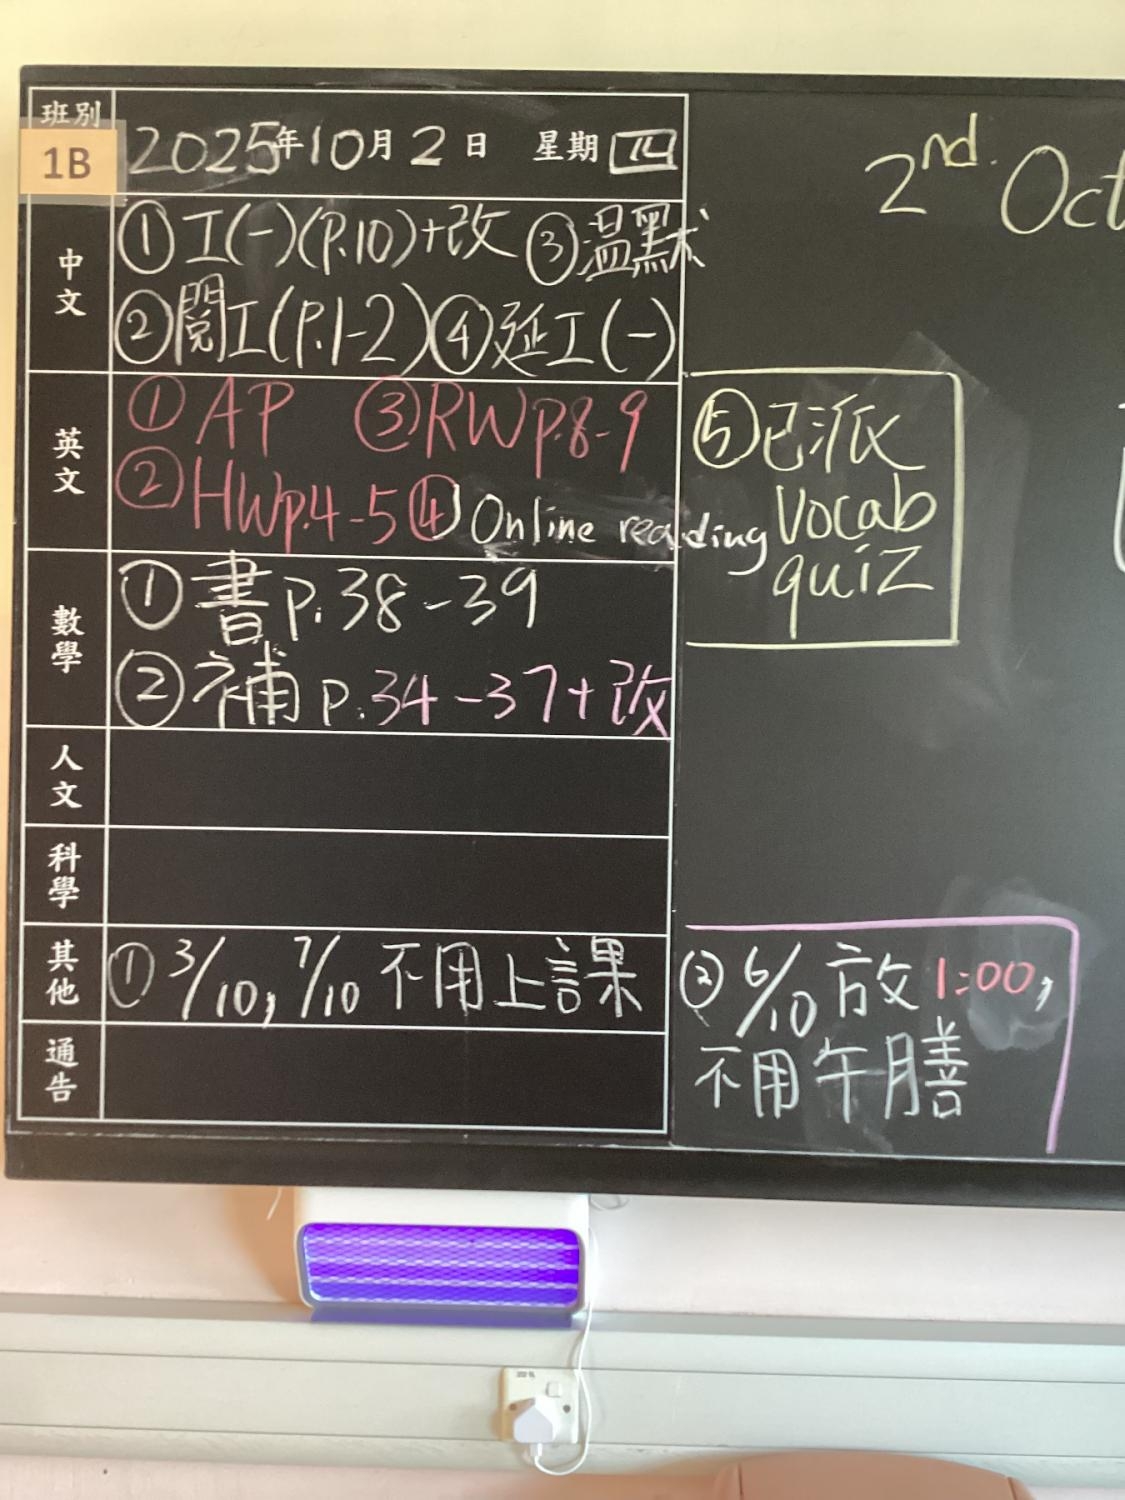 班別
1B
2025年10月2日 星期四
2nd. Oct
中文
①工(一)(P.10)+改 ③溫默
②閱工(P.1-2) ④延工(一)
英文
①AP ③RWp.8-9
②HWp.4-5 ④Online reading
⑤已派
vocab
quiz
數學
①書p.38-39
②補p.34-37+改
人文
科學
其他
①3/10, 7/10 不用上課
②6/10 放1:00,
不用午膳
通告